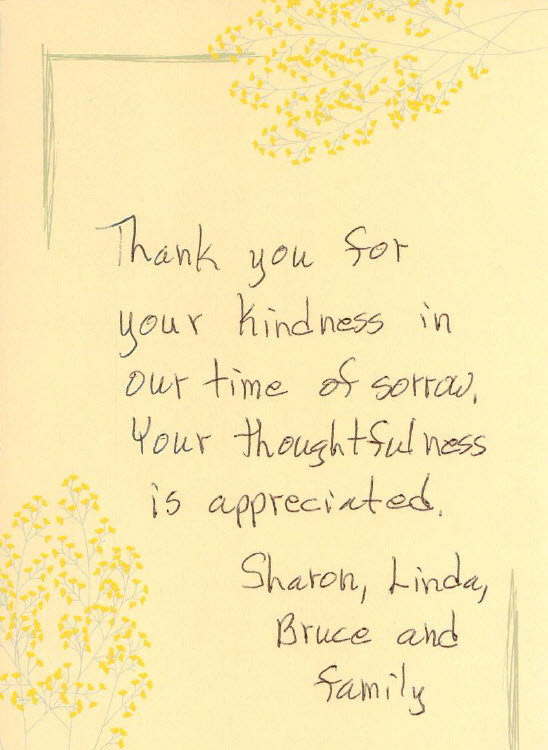 Thank you for
your kindness in
our time of sorrow.
Your thoughtfulness
is appreciated.
Sharon, Linda,
Bruce and
family